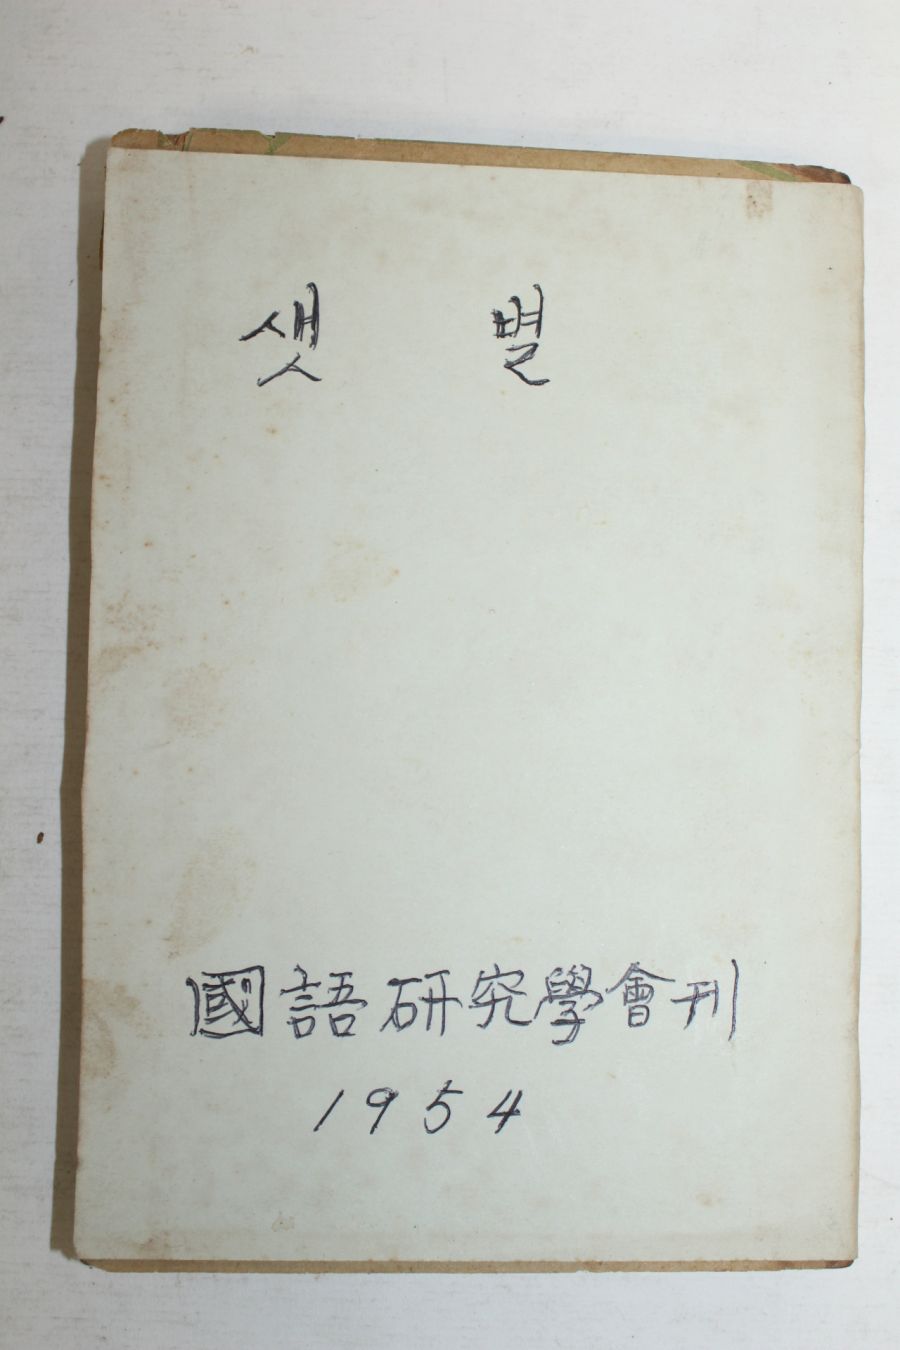 샛 별
國語硏究學會刊
1954